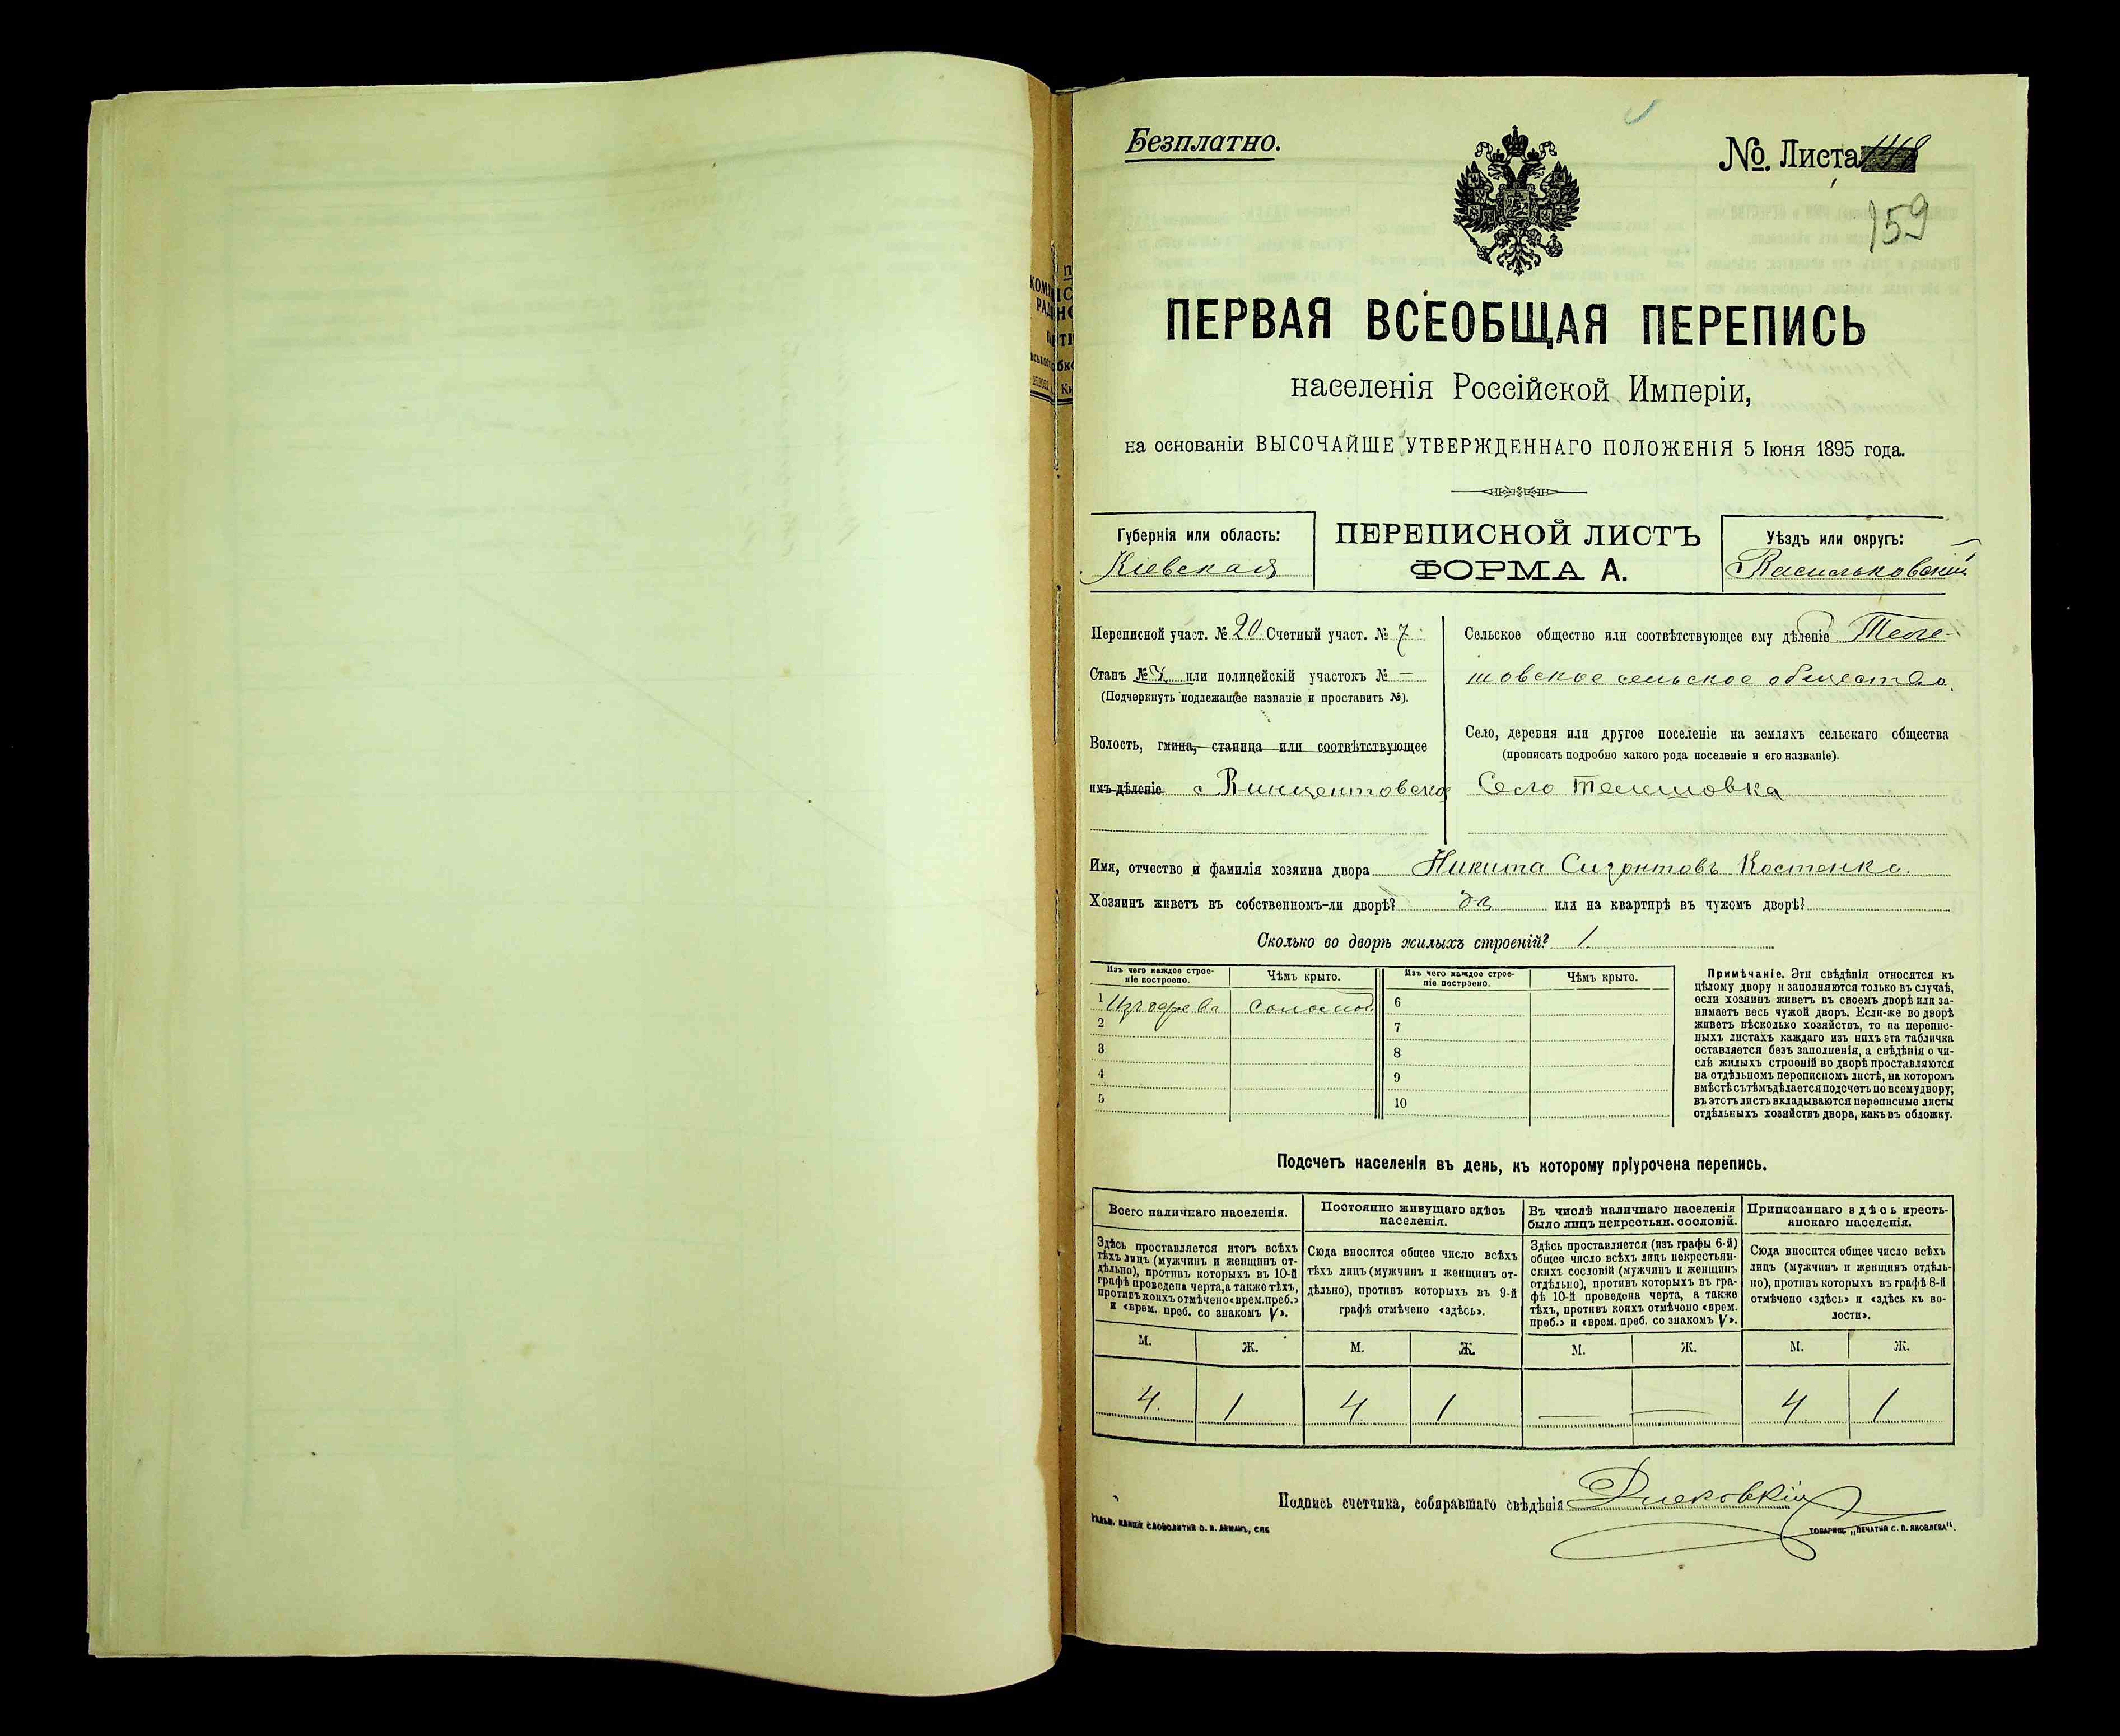 Безплатно.
№. Листа
159
ПЕРВАЯ ВСЕОБЩАЯ ПЕРЕПИСЬ
населенія Россійской Имперіи,
на основаніи ВЫСОЧАЙШЕ УТВЕРЖДЕННАГО ПОЛОЖЕНІЯ 5 Іюня 1895 года.
Губернія или область:
Кіевская
ПЕРЕПИСНОЙ ЛИСТЪ
ФОРМА А.
Уѣздъ или округъ:
Васильковскій
Переписной участ. № 20 Счетный участ. № 7
Станъ № или полицейскій участокъ № —
(Подчеркнуть подлежащее названіе и проставить №).
Волость, гмина, станица или соотвѣтствующее
имъ дѣленіе Винцентовское
Сельское общество или соотвѣтствующее ему дѣленіе Теле-
шовское сельское общество.
Село, деревня или другое поселеніе на земляхъ сельскаго общества
(прописать подробно какого рода поселеніе и его названіе).
Село Телешовка
Имя, отчество и фамилія хозяина двора Никита Костенко.
Хозяинъ живетъ въ собственномъ-ли дворѣ? да или на квартирѣ въ чужомъ дворѣ?
Сколько во дворѣ жилыхъ строеній? 1
Изъ чего каждое строе-
ніе построено.
Чѣмъ крыто.
Изъ чего каждое строе-
ніе построено.
Чѣмъ крыто.
1 Изъ дерева соломой 6
2 7
3 8
4 9
5 10
Примѣчаніе. Эти свѣдѣнія относятся къ
цѣлому двору и заполняются только въ случаѣ,
если хозяинъ живетъ въ своемъ дворѣ или за-
нимаетъ весь чужой дворъ. Если-же во дворѣ
живетъ нѣсколько хозяйствъ, то на перепис-
ныхъ листахъ каждаго изъ нихъ эта табличка
оставляется безъ заполненія, а свѣдѣнія о чи-
слѣ жилыхъ строеній во дворѣ проставляются
на отдѣльномъ переписномъ листѣ, на которомъ
вмѣстѣ съ тѣмъ дѣлается подсчетъ по всему двору;
въ этотъ листъ вкладываются переписные листы
отдѣльныхъ хозяйствъ двора, какъ въ обложку.
Подсчетъ населенія въ день, къ которому пріурочена перепись.
Всего наличнаго населенія.
Здѣсь проставляется итогъ всѣхъ
тѣхъ лицъ (мужчинъ и женщинъ от-
дѣльно), противъ которыхъ въ 10-й
графѣ проведена черта, а также тѣхъ,
противъ коихъ отмѣчено «врем. преб.»
и «врем. преб. со знакомъ V».
Постоянно живущаго здѣсь
населенія.
Сюда вносится общее число всѣхъ
тѣхъ лицъ (мужчинъ и женщинъ от-
дѣльно), противъ которыхъ въ 9-й
графѣ отмѣчено «здѣсь».
Въ числѣ наличнаго населенія
было лицъ некрестьян. сословій.
Здѣсь проставляется (изъ графы 6-й)
общее число всѣхъ лицъ некрестьян-
скихъ сословій (мужчинъ и женщинъ
отдѣльно), противъ которыхъ въ гра-
фѣ 10-й проведена черта, а также
тѣхъ, противъ коихъ отмѣчено «врем.
преб.» и «врем. преб. со знакомъ V».
Приписаннаго здѣсь кресть-
янскаго населенія.
Сюда вносится общее число всѣхъ
лицъ (мужчинъ и женщинъ отдѣль-
но), противъ которыхъ въ графѣ 8-й
отмѣчено «здѣсь» и «здѣсь къ во-
лости».
М. Ж. М. Ж. М. Ж. М. Ж.
4. 1 4 1 — — 4 1
Подпись счетчика, собиравшаго свѣдѣнія
ТОВАРИЩ. „ПЕЧАТНЯ С. П. ЯКОВЛЕВА".